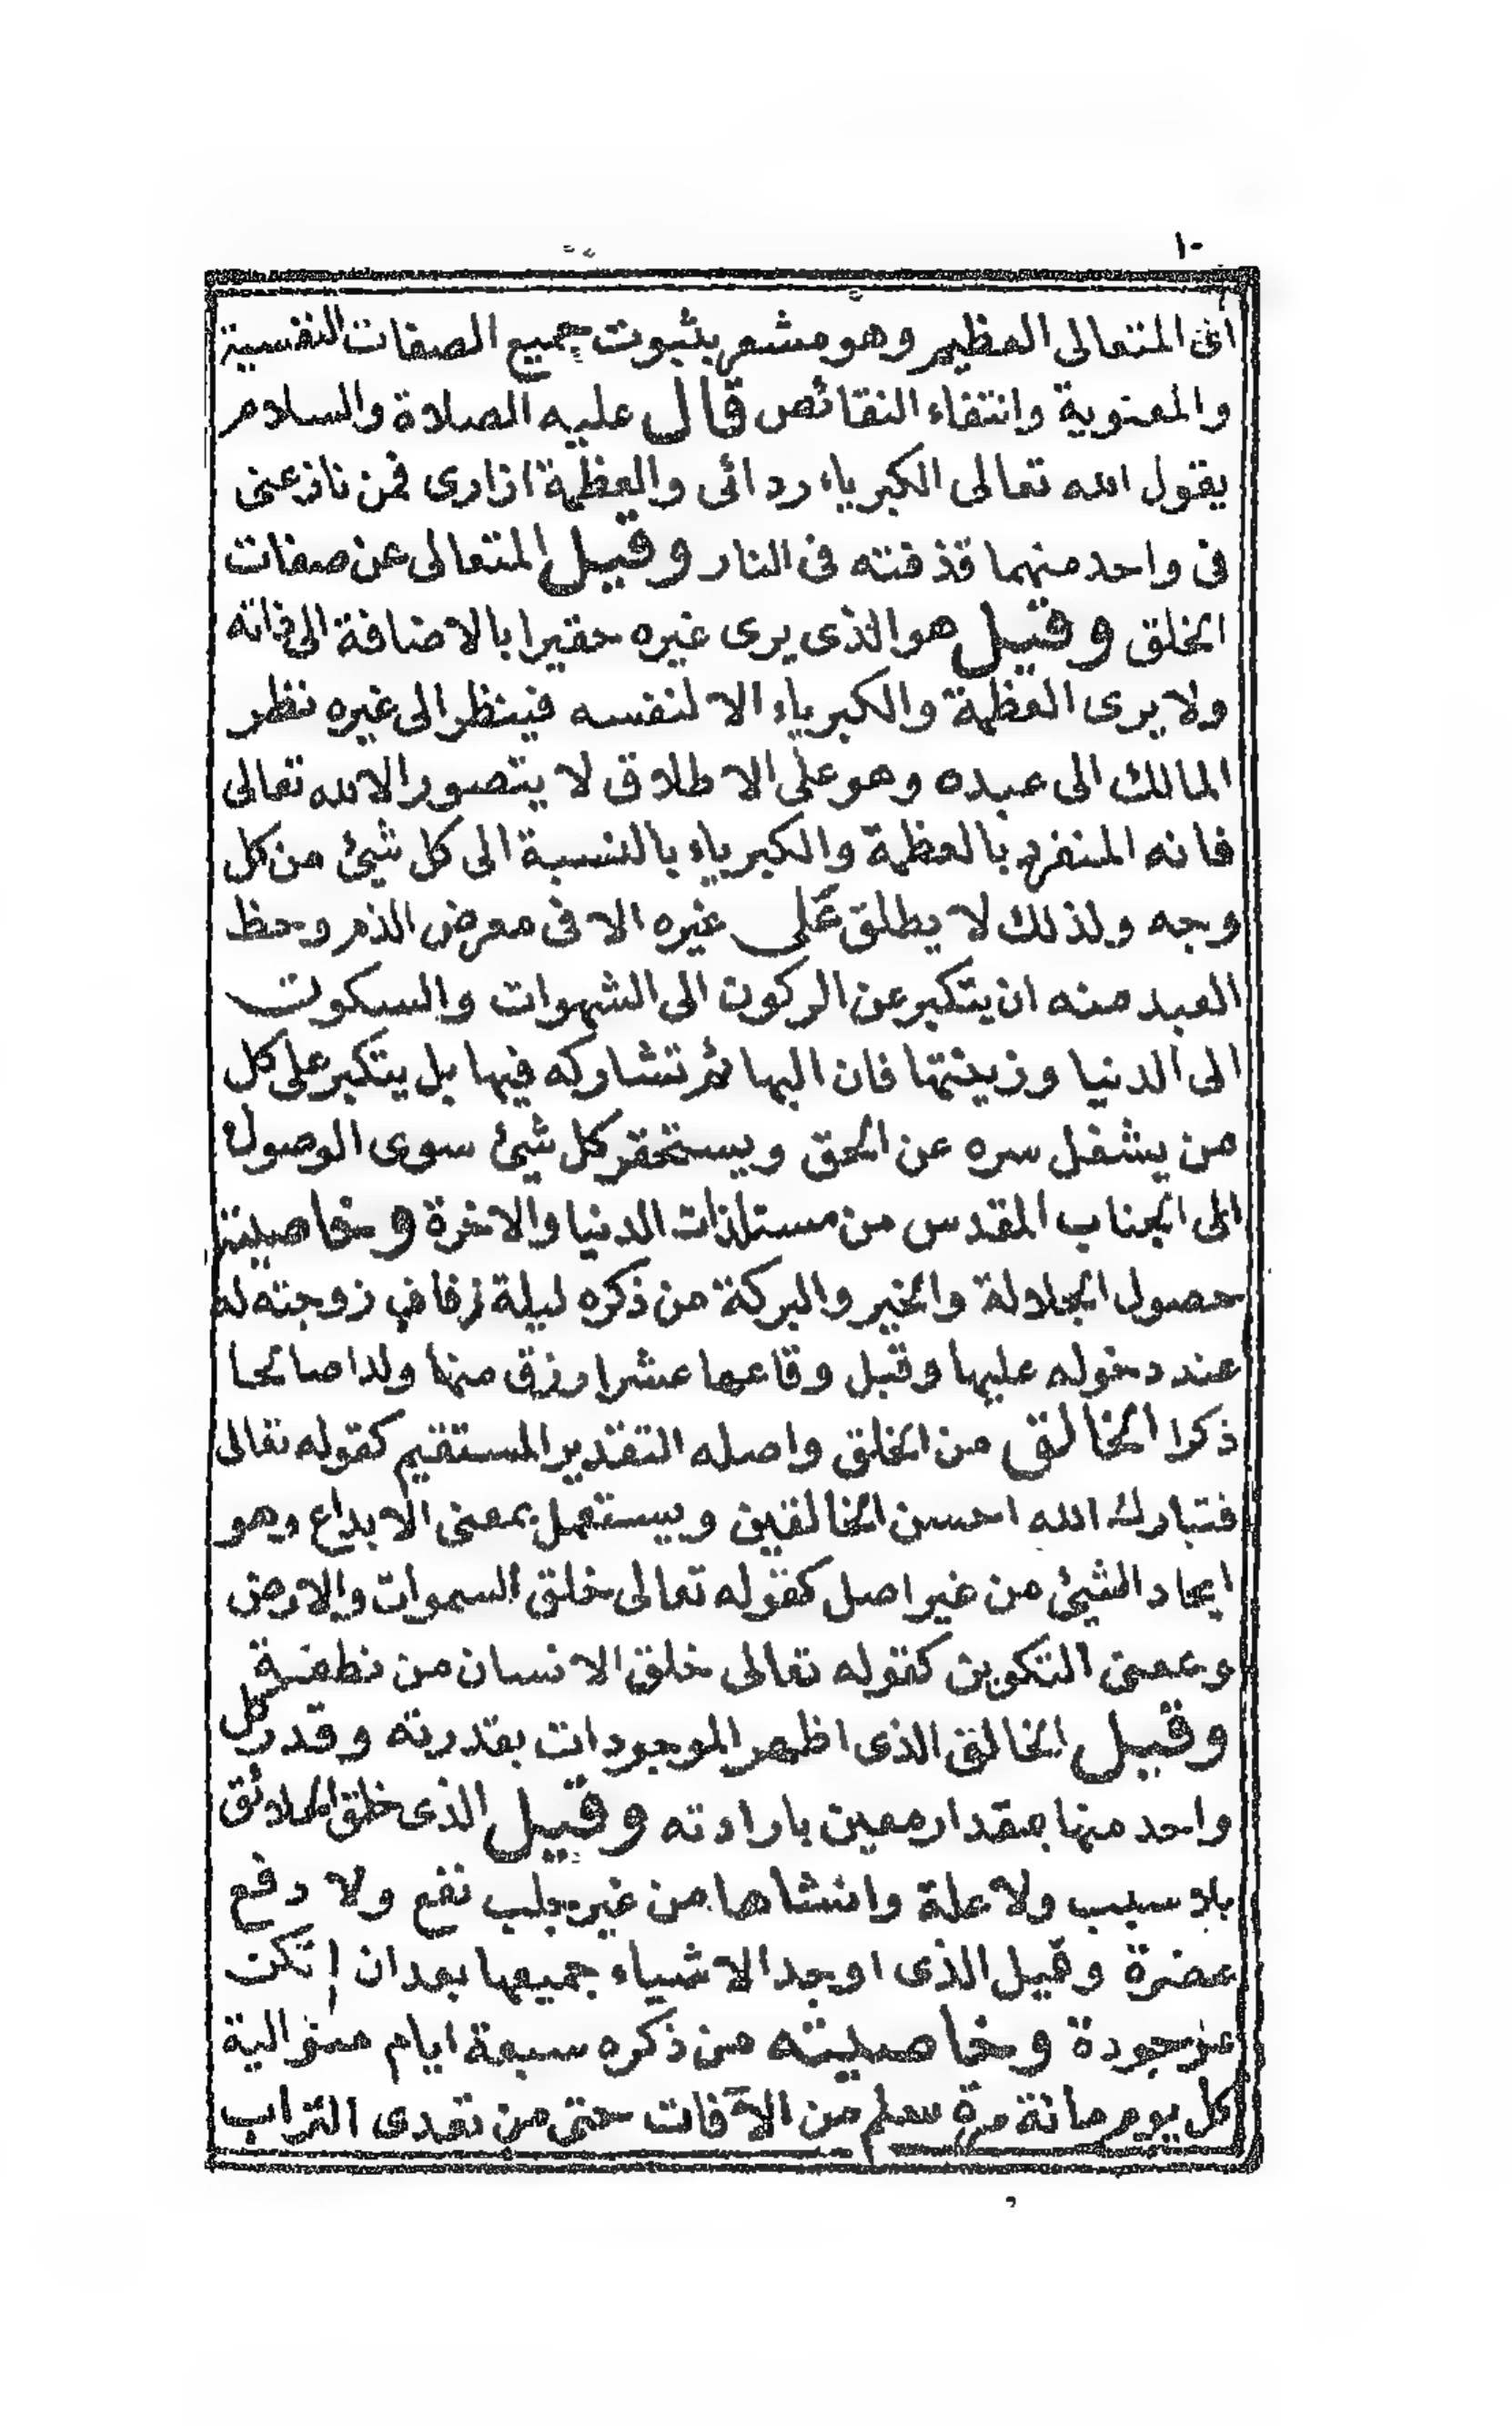 ١٠
اى المتعالى العظيم وهو مشعر بثبوت جميع الصفات النفسية
والمعنوية وانتفاء النقائص قال عليه الصلاة والسلام
يقول الله تعالى الكبرياء ردائى والعظمة ازارى فمن نازعنى
فى واحد منهما قذفته فى النار وقيل المتعالى عن صفات
الخلق وقيل هو الذى يرى غيره حقيرا بالاضافة الى ذاته
ولا يرى العظمة والكبرياء الا لنفسه فينظر الى غيره نظر
المالك الى عبده وهو على الاطلاق لا يتصور الا لله تعالى
فانه المنفرد بالعظمة والكبرياء بالنسبة الى كل شيئ من كل
وجه ولذلك لا يطلق على غيره الا فى معرض الذم وحظ
العبد منه ان يتكبر عن الركون الى الشهوات والسكون
الى الدنيا وزينتها فان البهائم تشاركه فيها بل يتكبر على كل
من يشغل سره عن الحق ويستحقر كل شيئ سوى الوصول
الى الجناب المقدس من مستلذات الدنيا والاخرة وخاصيته
حصول الجلالة والخير والبركة من ذكره ليلة زفاف زوجته له
عند دخوله عليها وقبل وقاعها عشرا رزق منها ولدا صالحا
ذكرا الخالق من الخلق واصله التقدير المستقيم كقوله تعالى
فتبارك الله احسن الخالقين ويستعمل بمعنى الابداع وهو
ايجاد الشيئ من غير اصل كقوله تعالى خلق السموات والارض
وبمعنى التكوين كقوله تعالى خلق الانسان من نطفة
وقيل الخالق الذى اظهر الموجودات بقدرته وقدر كل
واحد منها بمقدار معين بارادته وقيل الذى خلق الخلائق
بلا سبب ولا علة وانشاها من غير جلب نفع ولا دفع
مضرة وقيل الذى اوجد الاشياء جميعها بعد ان لم تكن
موجودة وخاصيته من ذكره سبعة ايام متوالية
كل يوم مائة مرة سلم من الآفات حتى من تعدى التراب